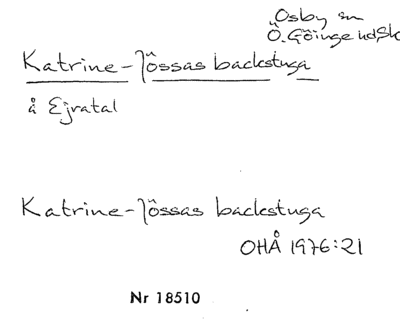 Osby sn
Ö. Göinge hd, Sk
Katrine-Jössas backstuga
å Ejratal
Katrine-Jössas backstuga
OHÅ 1976:21
Nr 18510